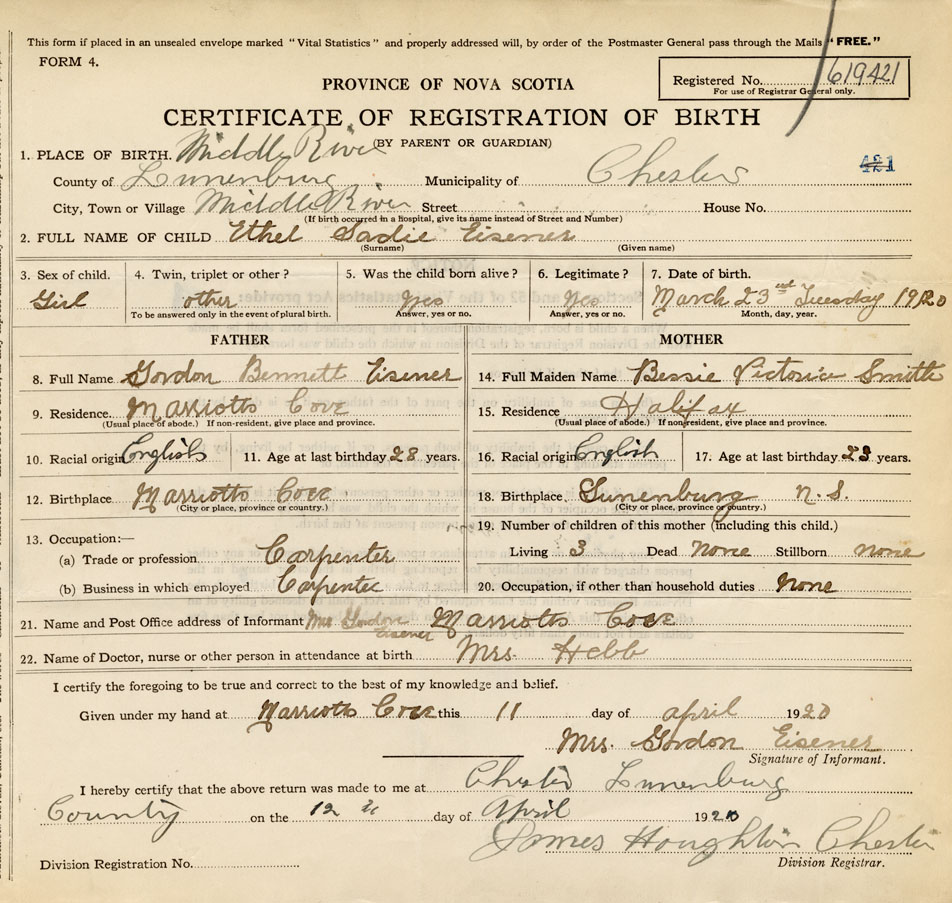 This form if placed in an unsealed envelope marked "Vital Statistics" and properly addressed will, by order of the Postmaster General pass through the Mails "FREE."
FORM 4.
Registered No. 619421
For use of Registrar General only.
PROVINCE OF NOVA SCOTIA
CERTIFICATE OF REGISTRATION OF BIRTH
(BY PARENT OR GUARDIAN)
1. PLACE OF BIRTH. Middle River
421
County of Lunenburg Municipality of Chester
City, Town or Village Middle River Street House No.
(If birth occurred in a Hospital, give its name instead of Street and Number)
2. FULL NAME OF CHILD Ethel Sadie Eisener
(Surname) (Given name)
3. Sex of child. 4. Twin, triplet or other? 5. Was the child born alive? 6. Legitimate? 7. Date of birth.
Girl other Yes Yes March 23rd Tuesday 1920
To be answered only in the event of plural birth. Answer, yes or no. Answer, yes or no. Month, day, year.
FATHER MOTHER
8. Full Name Gordon Bennett Eisener 14. Full Maiden Name Bessie Victoria Smith
9. Residence. Marriotts Cove 15. Residence Halifax
(Usual place of abode.) If non-resident, give place and province. (Usual place of abode.) If non-resident, give place and province.
10. Racial origin English 11. Age at last birthday 28 years. 16. Racial origin English 17. Age at last birthday 23 years.
12. Birthplace Marriotts Cove 18. Birthplace, Lunenburg N.S.
(City or place, province or country.) (City or place, province or country.)
13. Occupation:— 19. Number of children of this mother (including this child.)
(a) Trade or profession Carpenter Living 3 Dead None Stillborn none
(b) Business in which employed Carpenter 20. Occupation, if other than household duties None
21. Name and Post Office address of Informant Mrs Gordon Eisener Marriotts Cove
22. Name of Doctor, nurse or other person in attendance at birth Mrs. Hebb
I certify the foregoing to be true and correct to the best of my knowledge and belief.
Given under my hand at Marriotts Cove this 11 day of april 1920
Mrs. Gordon Eisener
Signature of Informant.
I hereby certify that the above return was made to me at Chester Lunenburg
County on the 12 day of April 1920
James Houghton Chester
Division Registration No. Division Registrar.